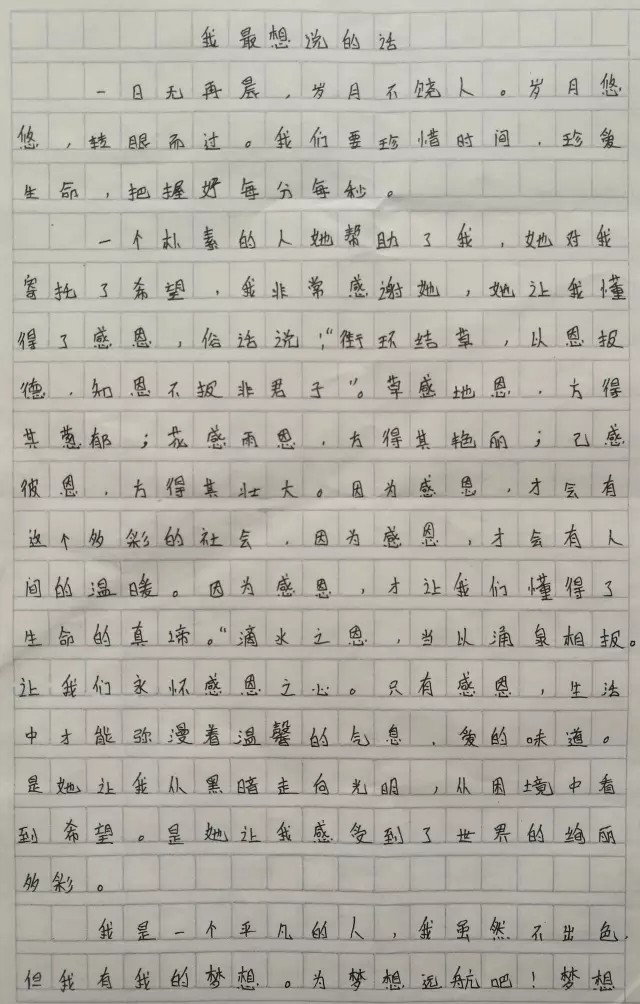 我最想说的话
一日无再晨，岁月不饶人。岁月悠
悠，转眼而过。我们要珍惜时间，珍爱
生命，把握好每分每秒。
一个朴素的人她帮助了我，她对我
寄托了希望，我非常感谢她，她让我懂
得了感恩，俗话说：“衔环结草，以恩报
德，知恩不报非君子”。草感地恩，方得
其葱郁；花感雨恩，方得其艳丽；己感
彼恩，方得其壮大。因为感恩，才会有
这个多彩的社会，因为感恩，才会有人
间的温暖。因为感恩，才让我们懂得了
生命的真谛。“滴水之恩，当以涌泉相报。
让我们永怀感恩之心。只有感恩，生活
中才能弥漫着温馨的气息，爱的味道。
是她让我从黑暗走向光明，从困境中看
到希望。是她让我感受到了世界的绚丽
多彩。
我是一个平凡的人，我虽然不出色，
但我有我的梦想。为梦想远航吧！梦想